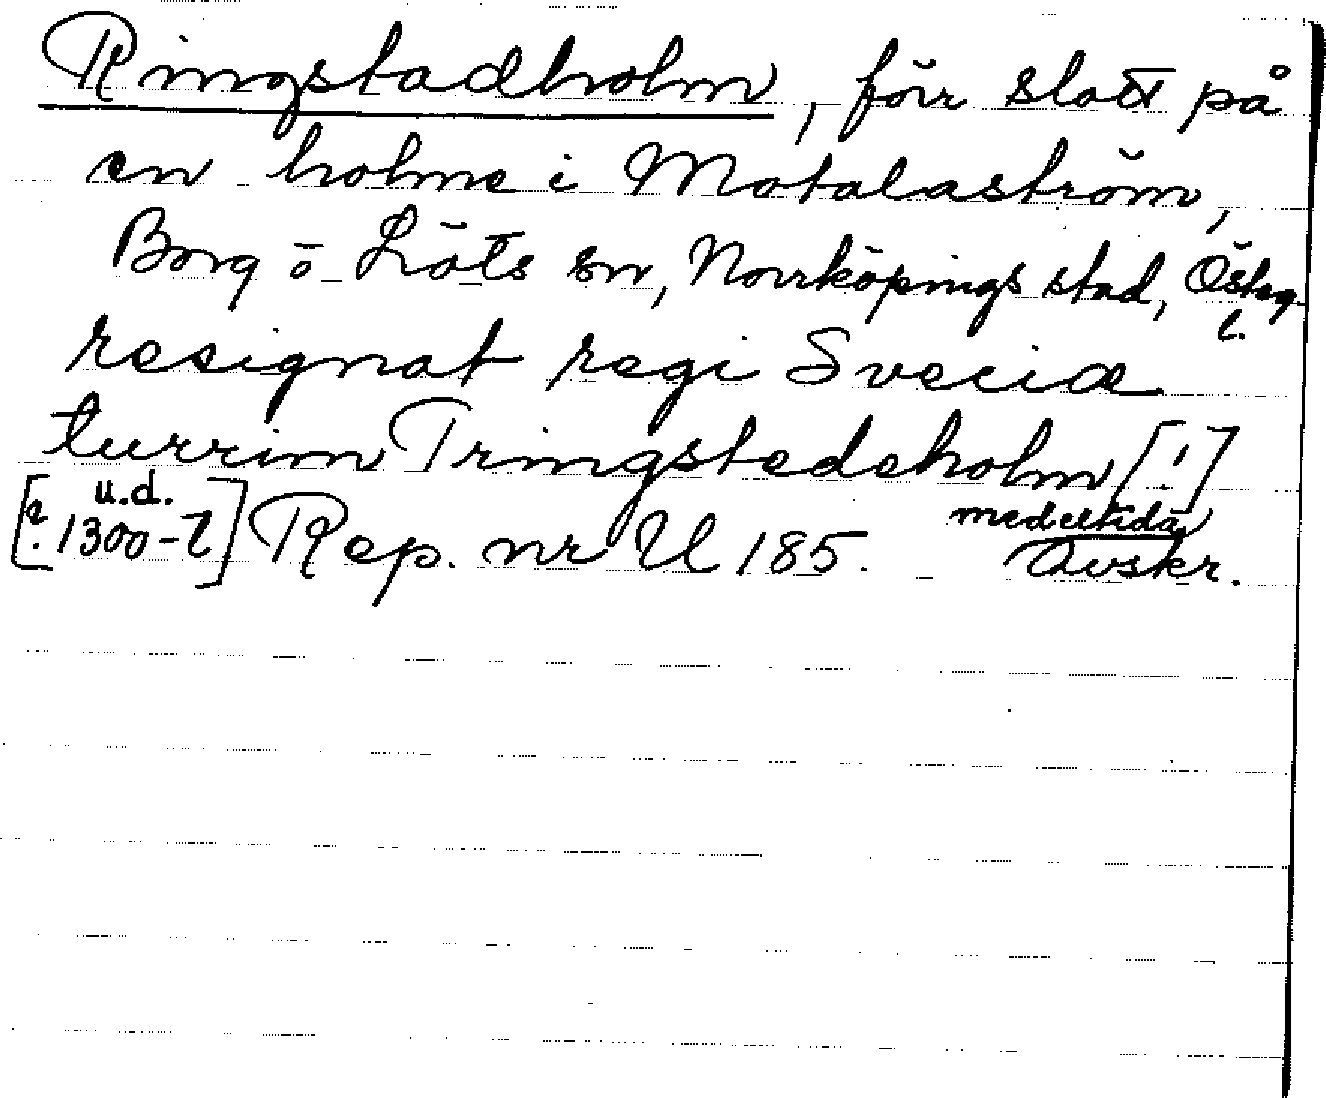 Ringstadholm, förr slott på
en holme i Motalaström,
Borg o Löts sn, Norrköpings stad, Österg.
l.
resignat regi Sveciæ
turrim Tringstedeholm [!]
[? u.d. 1300-t] Rep. nr U 185. medeltida Avskr.